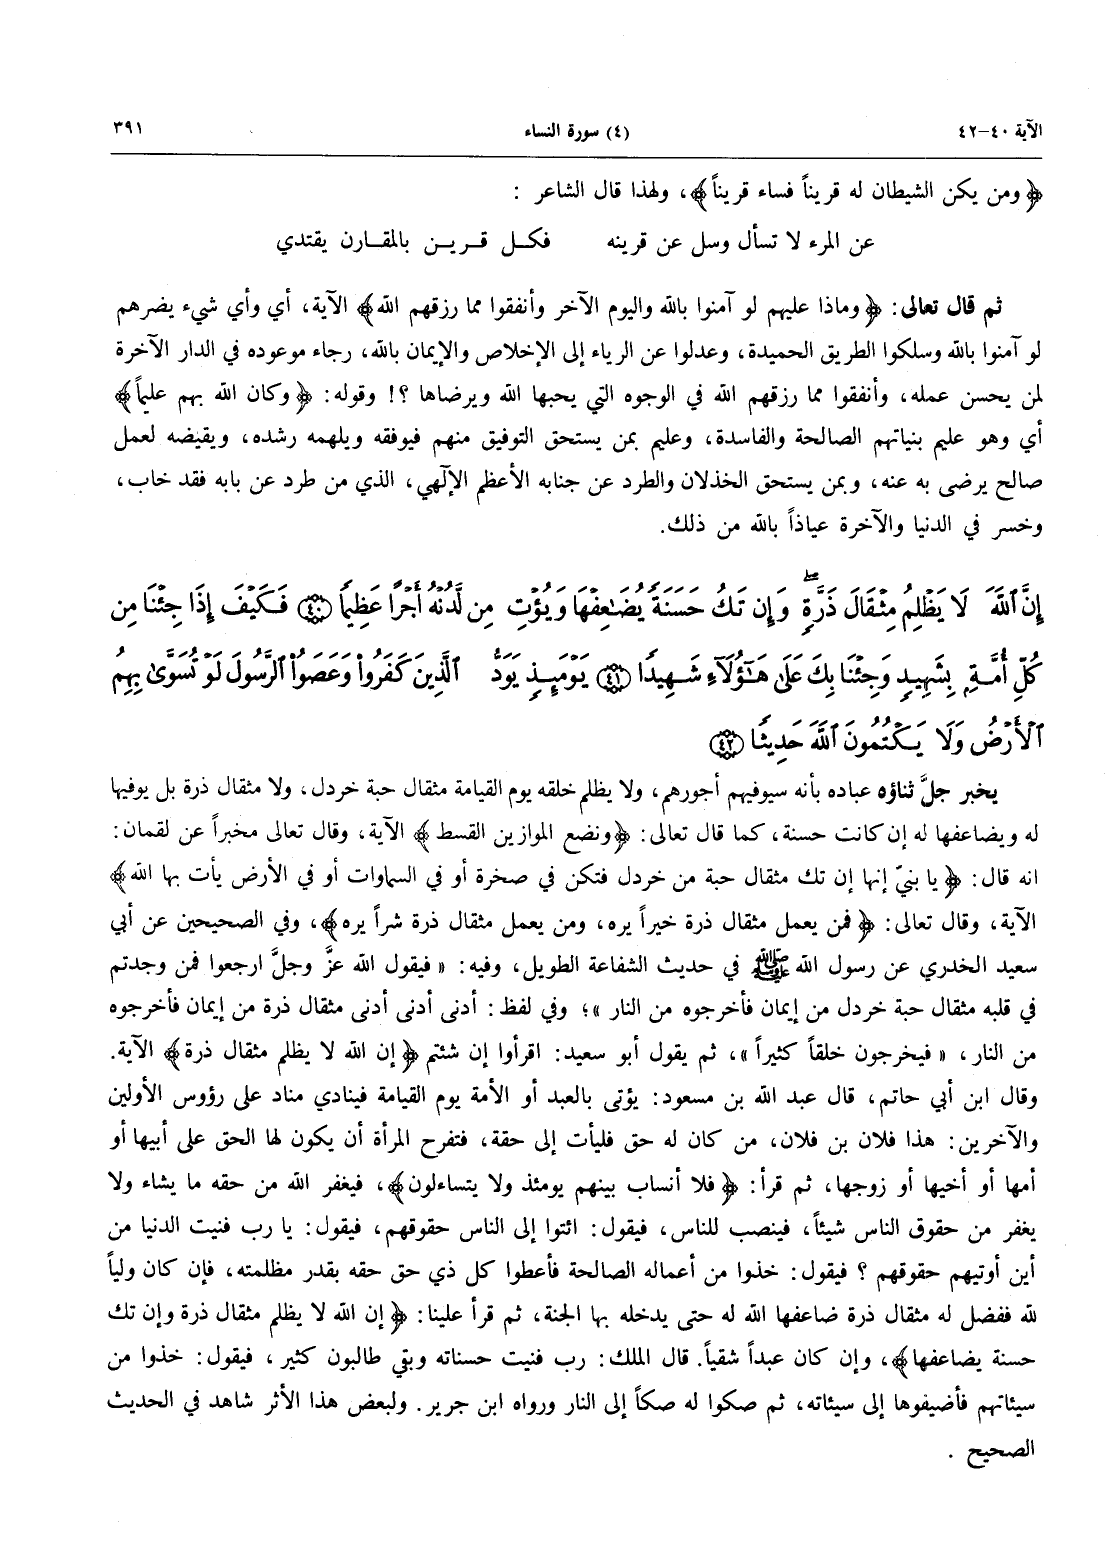 الآية ٤٠-٤٢ (٤) سورة النساء ٣٩١
﴿ومن يكن الشيطان له قريناً فساء قريناً﴾، ولهذا قال الشاعر :
عن المرء لا تسأل وسل عن قرينه فكل قرين بالمقارن يقتدي
ثم قال تعالى: ﴿وماذا عليهم لو آمنوا بالله واليوم الآخر وأنفقوا مما رزقهم الله﴾ الآية، أي وأي شيء يضرهم
لو آمنوا بالله وسلكوا الطريق الحميدة، وعدلوا عن الرياء إلى الإخلاص والإيمان بالله، رجاء موعوده في الدار الآخرة
لمن يحسن عمله، وأنفقوا مما رزقهم الله في الوجوه التي يحبها الله ويرضاها ؟! وقوله: ﴿وكان الله بهم عليماً﴾
أي وهو عليم بنياتهم الصالحة والفاسدة، وعليم بمن يستحق التوفيق منهم فيوفقه ويلهمه رشده، ويقيضه لعمل
صالح يرضى به عنه، وبمن يستحق الخذلان والطرد عن جنابه الأعظم الإلٰهي، الذي من طرد عن بابه فقد خاب،
وخسر في الدنيا والآخرة عياذاً بالله من ذلك.
إِنَّ ٱللَّهَ لَا يَظْلِمُ مِثْقَالَ ذَرَّةٍۖ وَإِن تَكُ حَسَنَةً يُضَٰعِفْهَا وَيُؤْتِ مِن لَّدُنْهُ أَجْرًا عَظِيمًا ﴿٤٠﴾ فَكَيْفَ إِذَا جِئْنَا مِن
كُلِّ أُمَّةٍۭ بِشَهِيدٍ وَجِئْنَا بِكَ عَلَىٰ هَٰٓؤُلَآءِ شَهِيدًا ﴿٤١﴾ يَوْمَئِذٍ يَوَدُّ ٱلَّذِينَ كَفَرُوا۟ وَعَصَوُا۟ ٱلرَّسُولَ لَوْ تُسَوَّىٰ بِهِمُ
ٱلْأَرْضُ وَلَا يَكْتُمُونَ ٱللَّهَ حَدِيثًا ﴿٤٢﴾
يخبر جلَّ ثناؤه عباده بأنه سيوفيهم أجورهم، ولا يظلم خلقه يوم القيامة مثقال حبة خردل، ولا مثقال ذرة بل يوفيها
له ويضاعفها له إن كانت حسنة، كما قال تعالى: ﴿ونضع الموازين القسط﴾ الآية، وقال تعالى مخبراً عن لقمان:
انه قال: ﴿يا بنيّ إنها إن تك مثقال حبة من خردل فتكن في صخرة أو في السماوات أو في الأرض يأت بها الله﴾
الآية، وقال تعالى: ﴿فمن يعمل مثقال ذرة خيراً يره، ومن يعمل مثقال ذرة شراً يره﴾، وفي الصحيحين عن أبي
سعيد الخدري عن رسول الله ﷺ في حديث الشفاعة الطويل، وفيه: « فيقول الله عزَّ وجلَّ ارجعوا فمن وجدتم
في قلبه مثقال حبة خردل من إيمان فأخرجوه من النار »؛ وفي لفظ: أدنى أدنى أدنى مثقال ذرة من إيمان فأخرجوه
من النار، « فيخرجون خلقاً كثيراً »، ثم يقول أبو سعيد: اقرأوا إن شئتم ﴿إن الله لا يظلم مثقال ذرة﴾ الآية.
وقال ابن أبي حاتم، قال عبد الله بن مسعود: يؤتى بالعبد أو الأمة يوم القيامة فينادي مناد على رؤوس الأولين
والآخرين: هذا فلان بن فلان، من كان له حق فليأت إلى حقة، فتفرح المرأة أن يكون لها الحق على أبيها أو
أمها أو أخيها أو زوجها، ثم قرأ: ﴿فلا أنساب بينهم يومئذ ولا يتساءلون﴾، فيغفر الله من حقه ما يشاء ولا
يغفر من حقوق الناس شيئاً، فينصب للناس، فيقول: ائتوا إلى الناس حقوقهم، فيقول: يا رب فنيت الدنيا من
أين أوتيهم حقوقهم ؟ فيقول: خذوا من أعماله الصالحة فأعطوا كل ذي حق حقه بقدر مظلمته، فإن كان ولياً
لله ففضل له مثقال ذرة ضاعفها الله له حتى يدخله بها الجنة، ثم قرأ علينا: ﴿إن الله لا يظلم مثقال ذرة وإن تك
حسنة يضاعفها﴾، وإن كان عبداً شقياً. قال الملك: رب فنيت حسناته وبقي طالبون كثير، فيقول: خذوا من
سيئاتهم فأضيفوها إلى سيئاته، ثم صكوا له صكاً إلى النار ورواه ابن جرير. ولبعض هذا الأثر شاهد في الحديث
الصحيح .